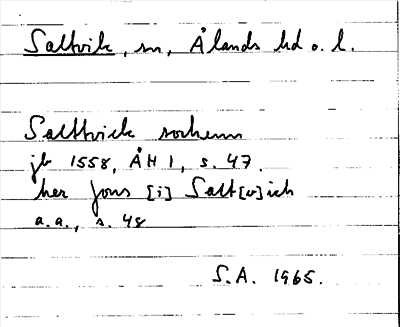 Saltvik, sn, Ålands hd o. l.
Saltvick sochenn
jb 1558, ÅH 1, s. 47.
her Jons [i] Salt[v]ich
a.a., s. 48
S.A. 1965.